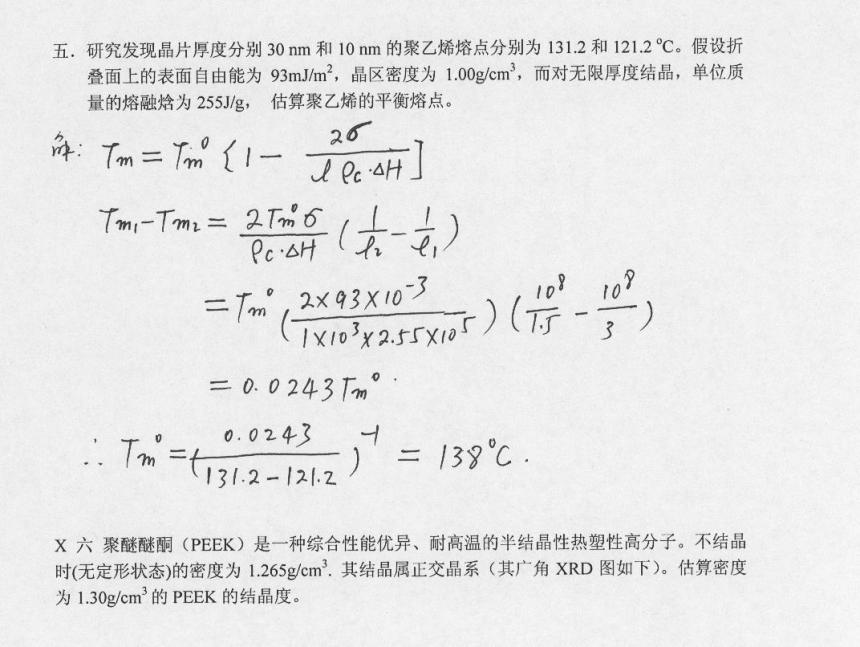 五．研究发现晶片厚度分别 30 nm 和 10 nm 的聚乙烯熔点分别为 131.2 和 121.2 ℃。假设折
叠面上的表面自由能为 93mJ/m²，晶区密度为 1.00g/cm³，而对无限厚度结晶，单位质
量的熔融焓为 255J/g， 估算聚乙烯的平衡熔点。
解: Tm = Tm° { 1 − 2σ / (l ρc·ΔH) ]
Tm₁−Tm₂ = 2Tm°σ / (ρc·ΔH) ( 1/l₂ − 1/l₁ )
= Tm° ( 2×93×10⁻³ / (1×10³×2.55×10⁵) ) ( 10⁸/1.5 − 10⁸/3 )
= 0.0243 Tm°
∴ Tm° = ( 0.0243 / (131.2−121.2) )⁻¹ = 138℃.
X 六 聚醚醚酮（PEEK）是一种综合性能优异、耐高温的半结晶性热塑性高分子。不结晶
时(无定形状态)的密度为 1.265g/cm³. 其结晶属正交晶系（其广角 XRD 图如下）。估算密度
为 1.30g/cm³ 的 PEEK 的结晶度。